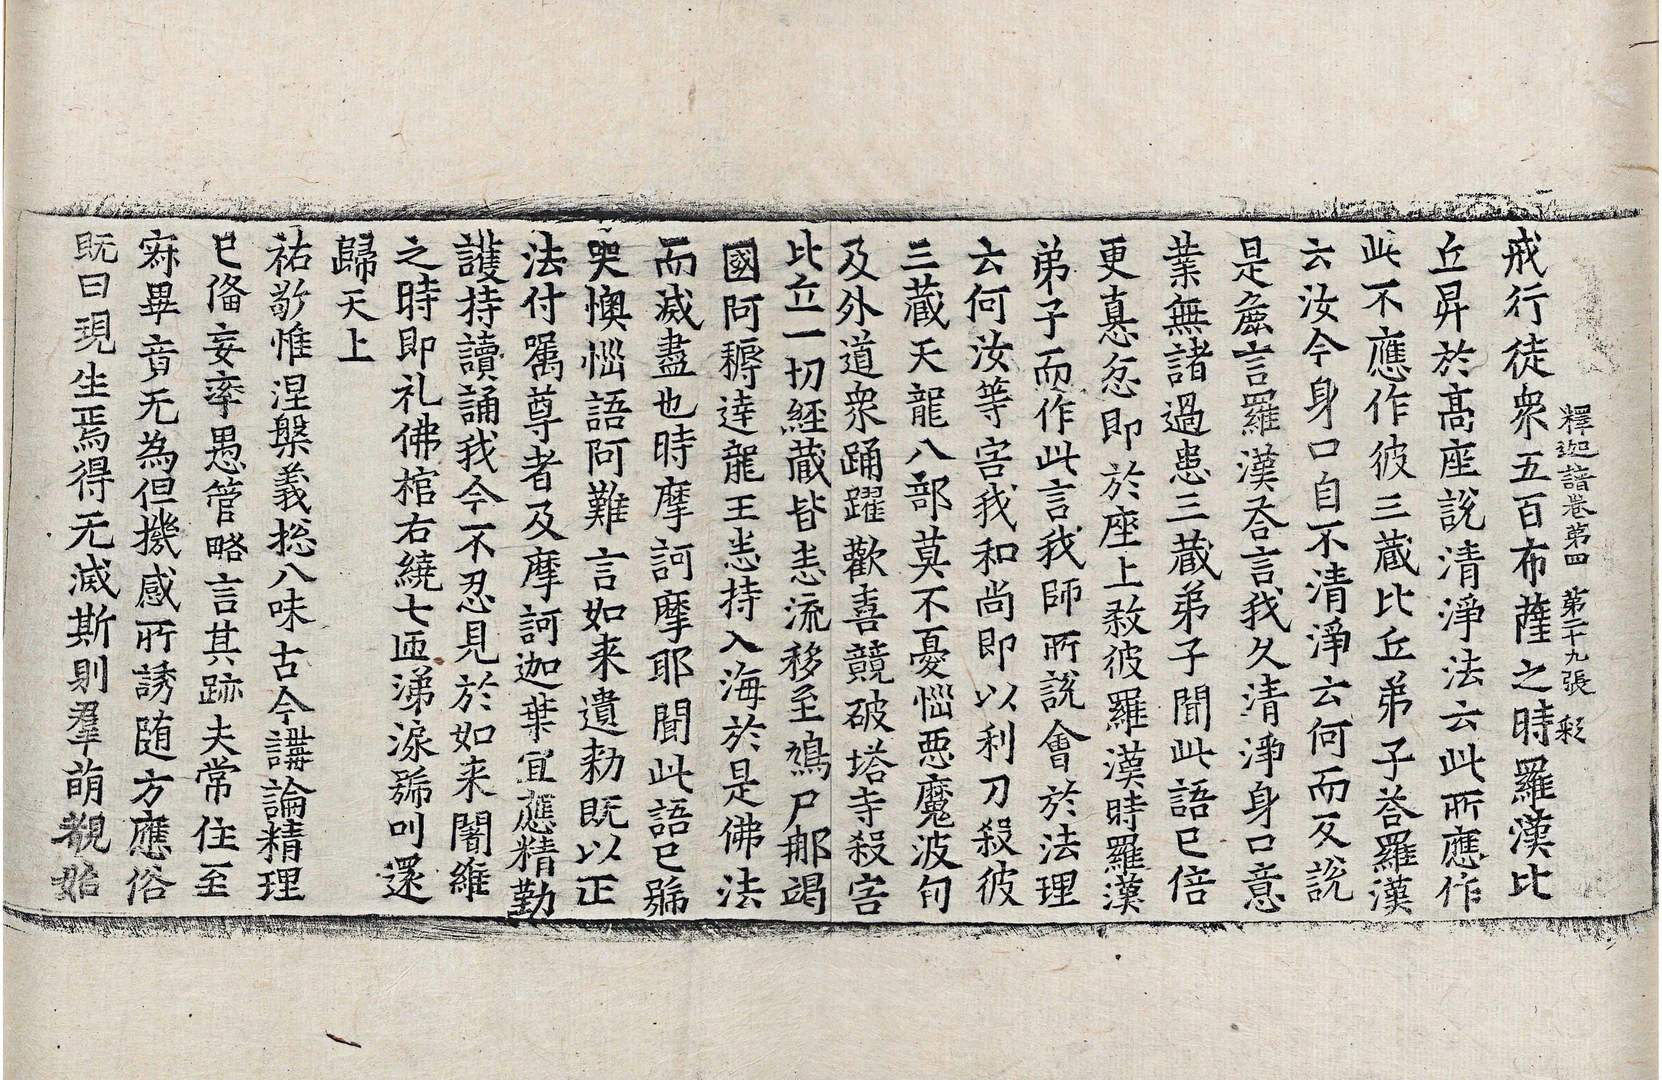 釋迦譜卷第四　第二十九張　彩
戒行徒衆五百布薩之時羅漢比
丘昇於髙座說清淨法云此所應作
此不應作彼三藏比丘弟子荅羅漢
云汝今身口自不清淨云何而反說
是麁言羅漢荅言我久清淨身口意
業無諸過患三藏弟子聞此語已倍
更恚忿即於座上煞彼羅漢時羅漢
弟子而作此言我師所說會於法理
云何汝等害我和尚即以利刀殺彼
三藏天龍八部莫不憂惱惡魔波旬
及外道衆踊躍歡喜競破塔寺殺害
比丘一切經藏皆悉流移至鳩尸那竭
國阿耨達龍王悉持入海於是佛法
而滅盡也時摩訶摩耶聞此語已號
哭懊惱語阿難言如来遺勑既以正
法付嘱尊者及摩訶迦葉宜應精勤
護持讀誦我今不忍見於如来闍維
之時即礼佛棺右繞七匝涕淚號叫還
歸天上
祐敬惟涅槃義揔八味古今講論精理
已俻妄率愚管略言其跡夫常住至
寂畢竟无為但機感所誘随方應俗
既曰現生焉得无滅斯則羣萌覩始